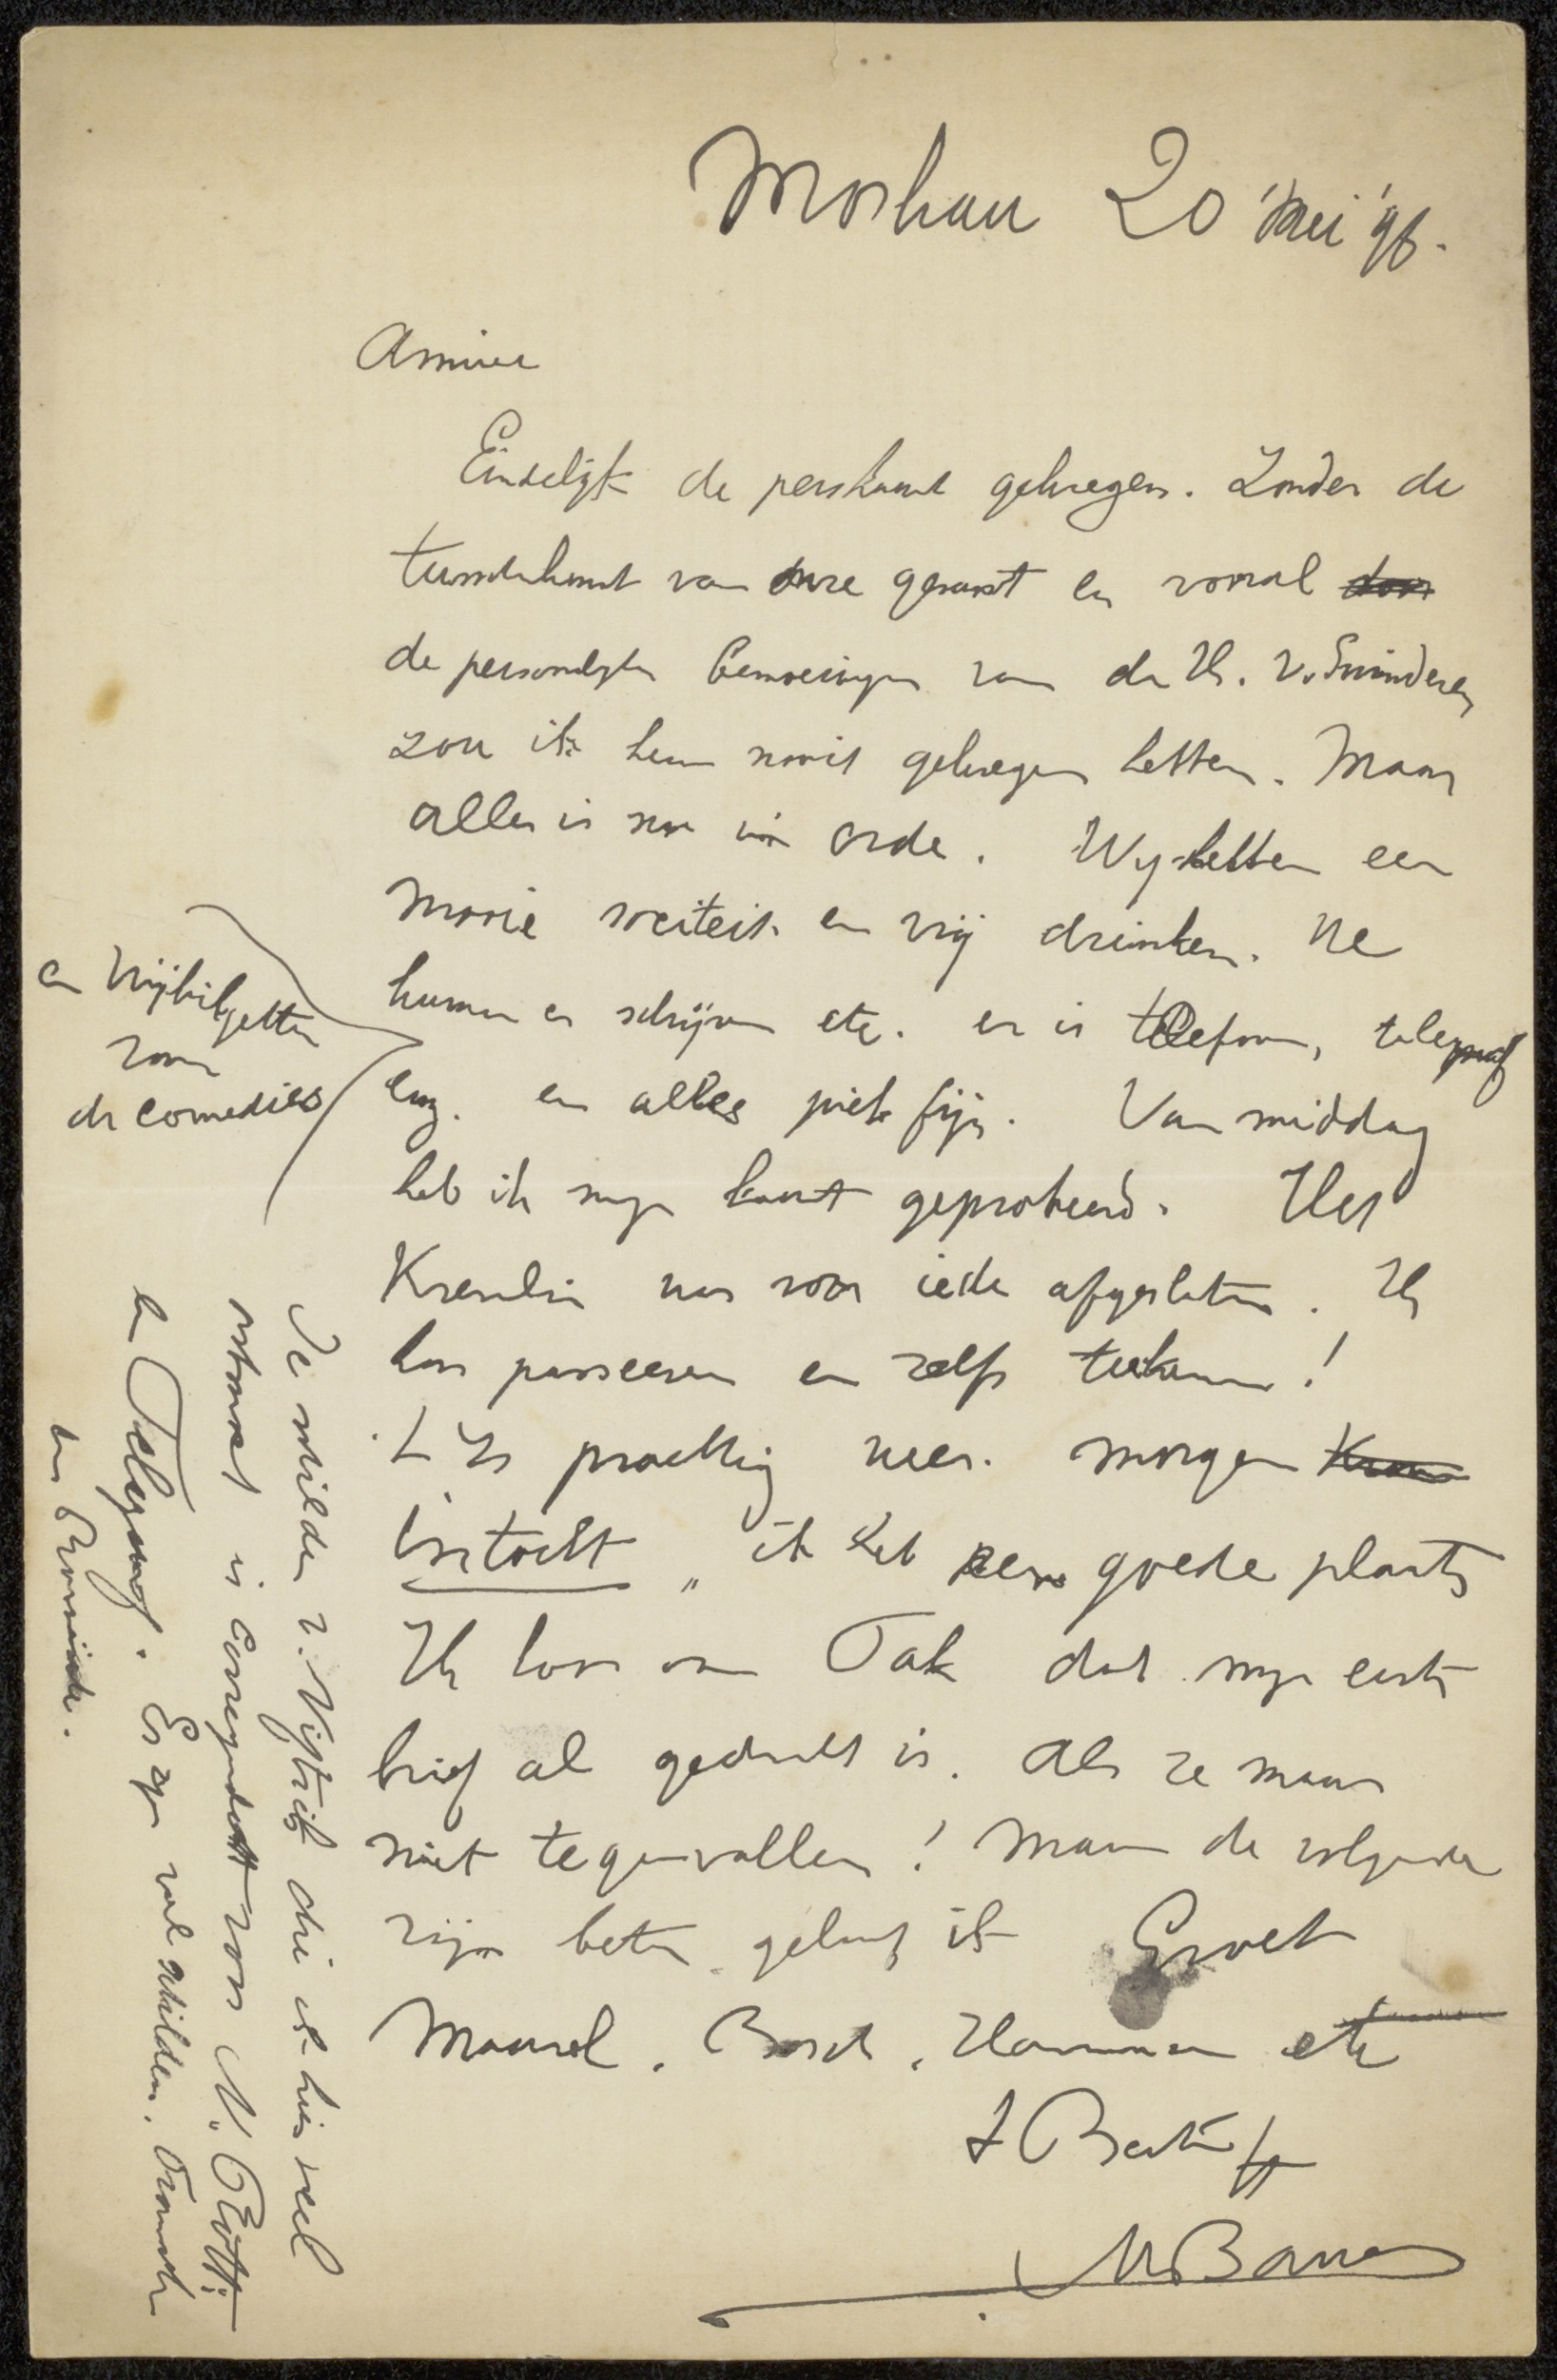 Moskau 20 Mei '96.
Amice
Eindelijk de perskaart gekregen. Zonder de
tusschenkomst van onze gezant en vooral door
de persoonlijke bemoeiingen van de H. v. Swinderen
zou ik hem nooit gekregen hebben. Maar
alles is nu in orde. Wy hebben een
mooie societeit en vrij drinken. We
kunnen er schrijven etc. er is telefoon, telegraaf
en vrijbiljetten
voor
de comedies
enz. en alles piekfijn. Van middag
heb ik myn kaart geprobeerd. Het
Kremlin was voor ieder afgesloten. Ik
kon passeeren en zelfs teekenen!
't Is prachtig weer. morgen
Intocht " ik heb een goede plaats
Ik hoor van Tak dat myn eerste
brief al gedrukt is. Als ze maar
niet tegenvallen! Maar de volgende
zijn beter geloof ik Groet
Mauve. Bosch. Hamman etc
t
MBauer
De schilder v. Vijfeijk die ik hier veel
ontmoet is Correspondent voor N. Rott:
en Telegraaf. Er zyn veel schilders. Fransch
en Russische.